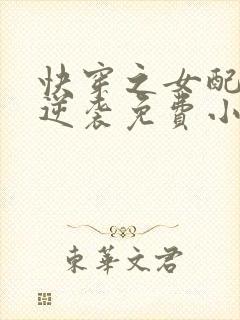 快穿之女配
逆袭免費小
東華文君